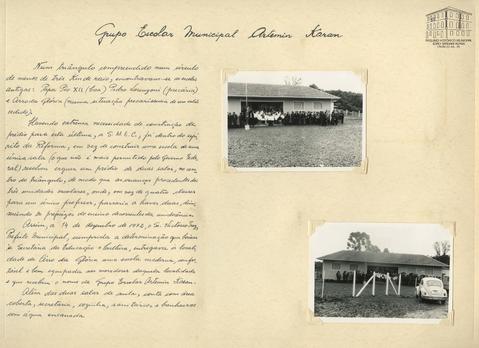 Grupo Escolar Municipal Artemin Karan
ARQUIVO HISTÓRICO MUNICIPAL
JOÃO SPADARI ADAMI
CAXIAS DO SUL - RS
Num triângulo compreendido num círculo
de menos de três km de raio, encontravam-se as escolas
antigas: Papa Pio XII (boa), Pedro (precária)
e Cerro da Glória (mesma situação precaríssima de
Havendo extrema necessidade de construção de
prédio para esta última, a S.M.E.C., foi dentro do espí-
rito da Reforma, em vez de construir uma escola de uma
única sala (o que não é mais permitido pelo Governo Fede-
ral) resolveu erguer um prédio de duas salas, no cen-
tro do triângulo, de modo que as crianças procedentes de
três unidades escolares, onde, em vez de quatro classes
para um único professor, passaria a haver duas, dimi-
nuindo os prejuízos do ensino
Assim, a 14 de dezembro de 1972, o Sr.
Prefeito Municipal, cumprindo a determinação que
a Secretaria de Educação e Cultura, entregava à locali-
dade de Cerro da Glória uma escola moderna, confor-
tável e bem equipada aos moradores daquela localidade
e que recebeu o nome de Grupo Escolar Artemin Karan.
Além das duas salas de aula, conta com área
coberta, secretaria, cozinha, sanitários e banheiros
com água encanada.